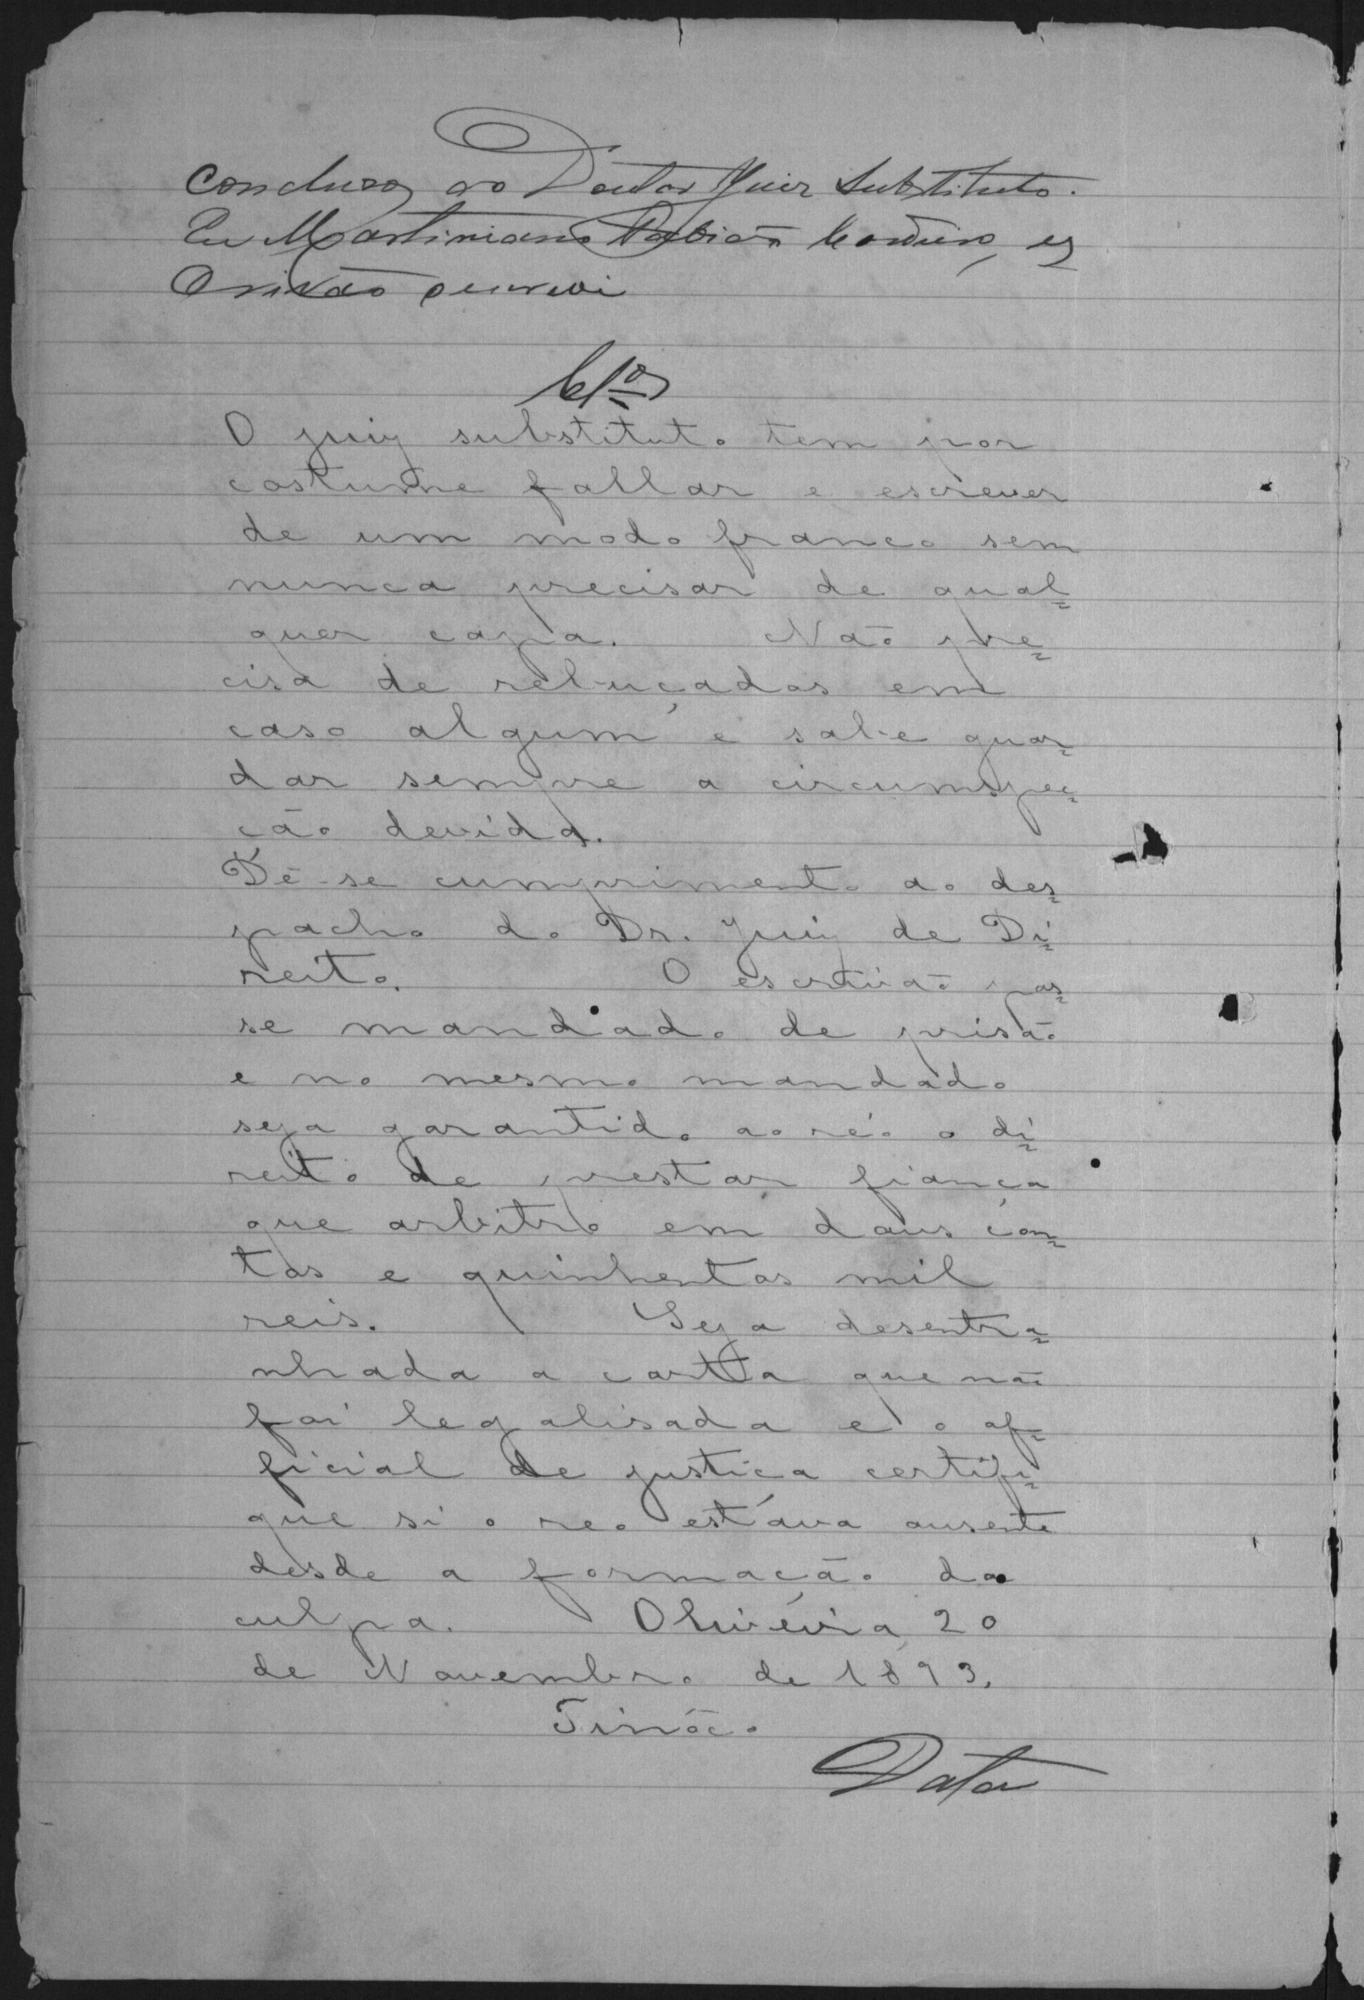 conclusos ao Doutor Juiz Substituto.
Eu Martiniano Fabião Cordeiro, es
crivão o escrevi
Clºs
O juiz substituto tem por
costume fallar e escrever
de um modo franco sem
nunca precisar de qual=
quer capa. Não pre=
cisa de rebuçados em
caso algum e sabe guar=
dar sempre a circumspec=
ção devida.
Dê-se cumprimento ao des=
pacho do Dr. Juiz de Di=
reito. O escrivão pas=
se mandado de prisão
e no mesmo mandado
seja garantido ao réo o di=
reito de prestar fiança
que arbitro em dous con=
tos e quinhentos mil
reis. Seja desentra=
nhada a carta que não
foi legalisada e o of=
ficial de justiça certifi=
que si o reo estava ausente
desde a formação da
culpa. Oliveira, 20
de Novembro de 1893.
Tinôco
Data